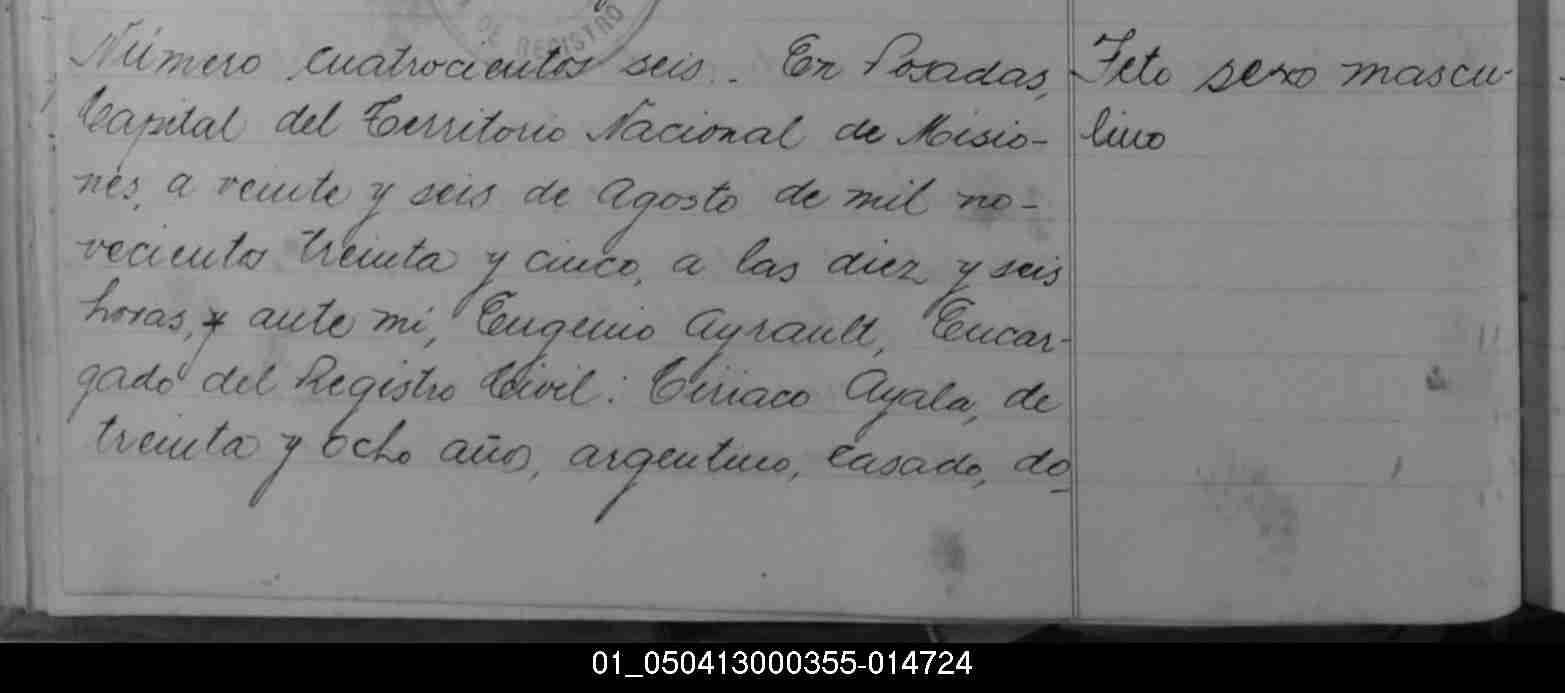 DE REGISTRO
Número cuatrocientos seis. En Posadas,
Capital del Territorio Nacional de Misio-
nes, a veinte y seis de Agosto de mil no-
vecientos treinta y cinco, a las diez y seis
horas, y ante mi, Eugenio Ayrault, Encar-
gado del Registro Civil: Ciriaco Ayala, de
treinta y ocho años, argentino, casado, do-
Feto sexo mascu-
lino
01_050413000355-014724